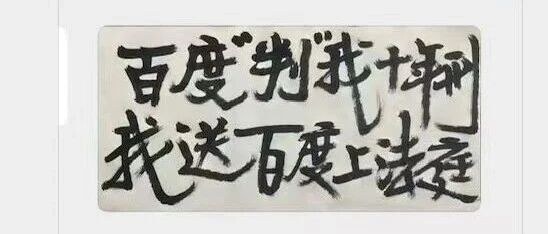 百度"判"我十年刑
我送百度上法庭